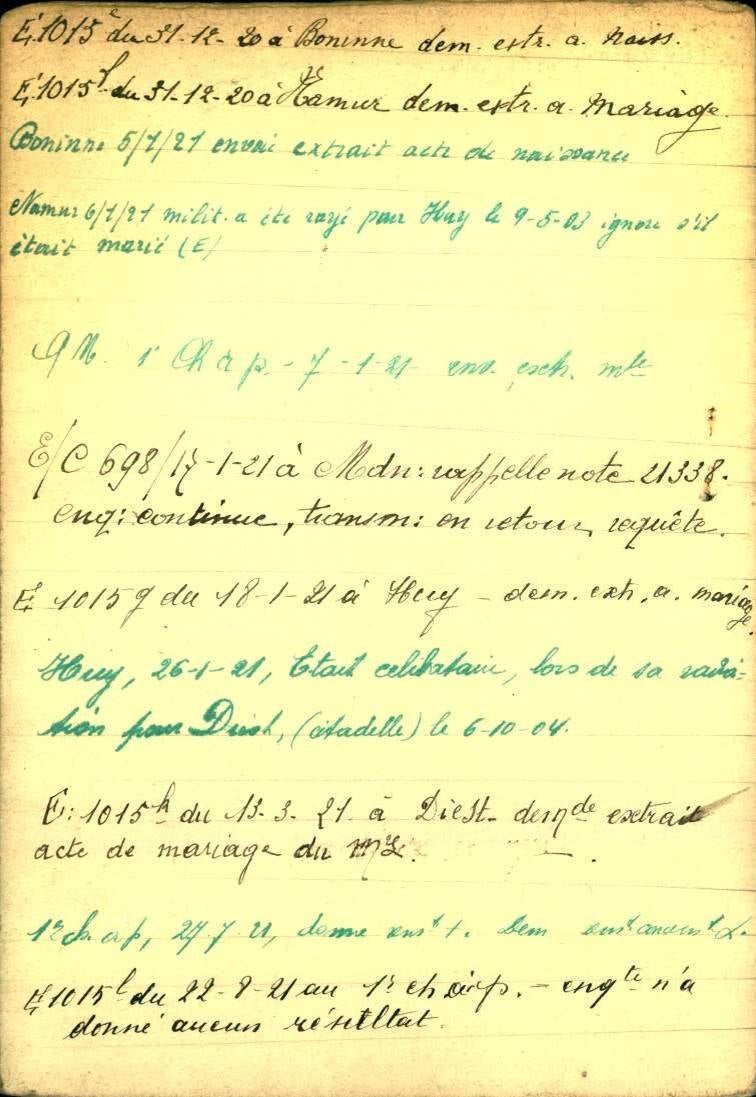 E. 1015 e du 31-12-20 à Boninne dem. extr. a. naiss.
E. 1015 f du 31-12-20 à Namur dem. extr. a. mariage.
Boninne 5/1/21 envoi extrait acte de naissance
Namur 6/1/21 milit. a été rayé pour Huy le 9-5-03 ignore s'il
était marié (E)
1r Ch à p. - 7-1-21 env. extr. mle
E/C 698/17-1-21 à Mdn: rappelle note 21338.
enq: continue, transm: en retour, requête.
E 1015 g du 18-1-21 à Huy - dem. extr. a. mariage.
Huy, 26-1-21, Etait célibataire, lors de sa radia-
tion pour Diest, (citadelle) le 6-10-04.
E: 1015 h du 13-3-21 à Diest. demde extrait
acte de mariage du
1r ch. à p, 27.7.21, donne Dem
E 1015 l du 22-8-21 au 1r ch à p. - enqte n'a
donné aucun résultat.